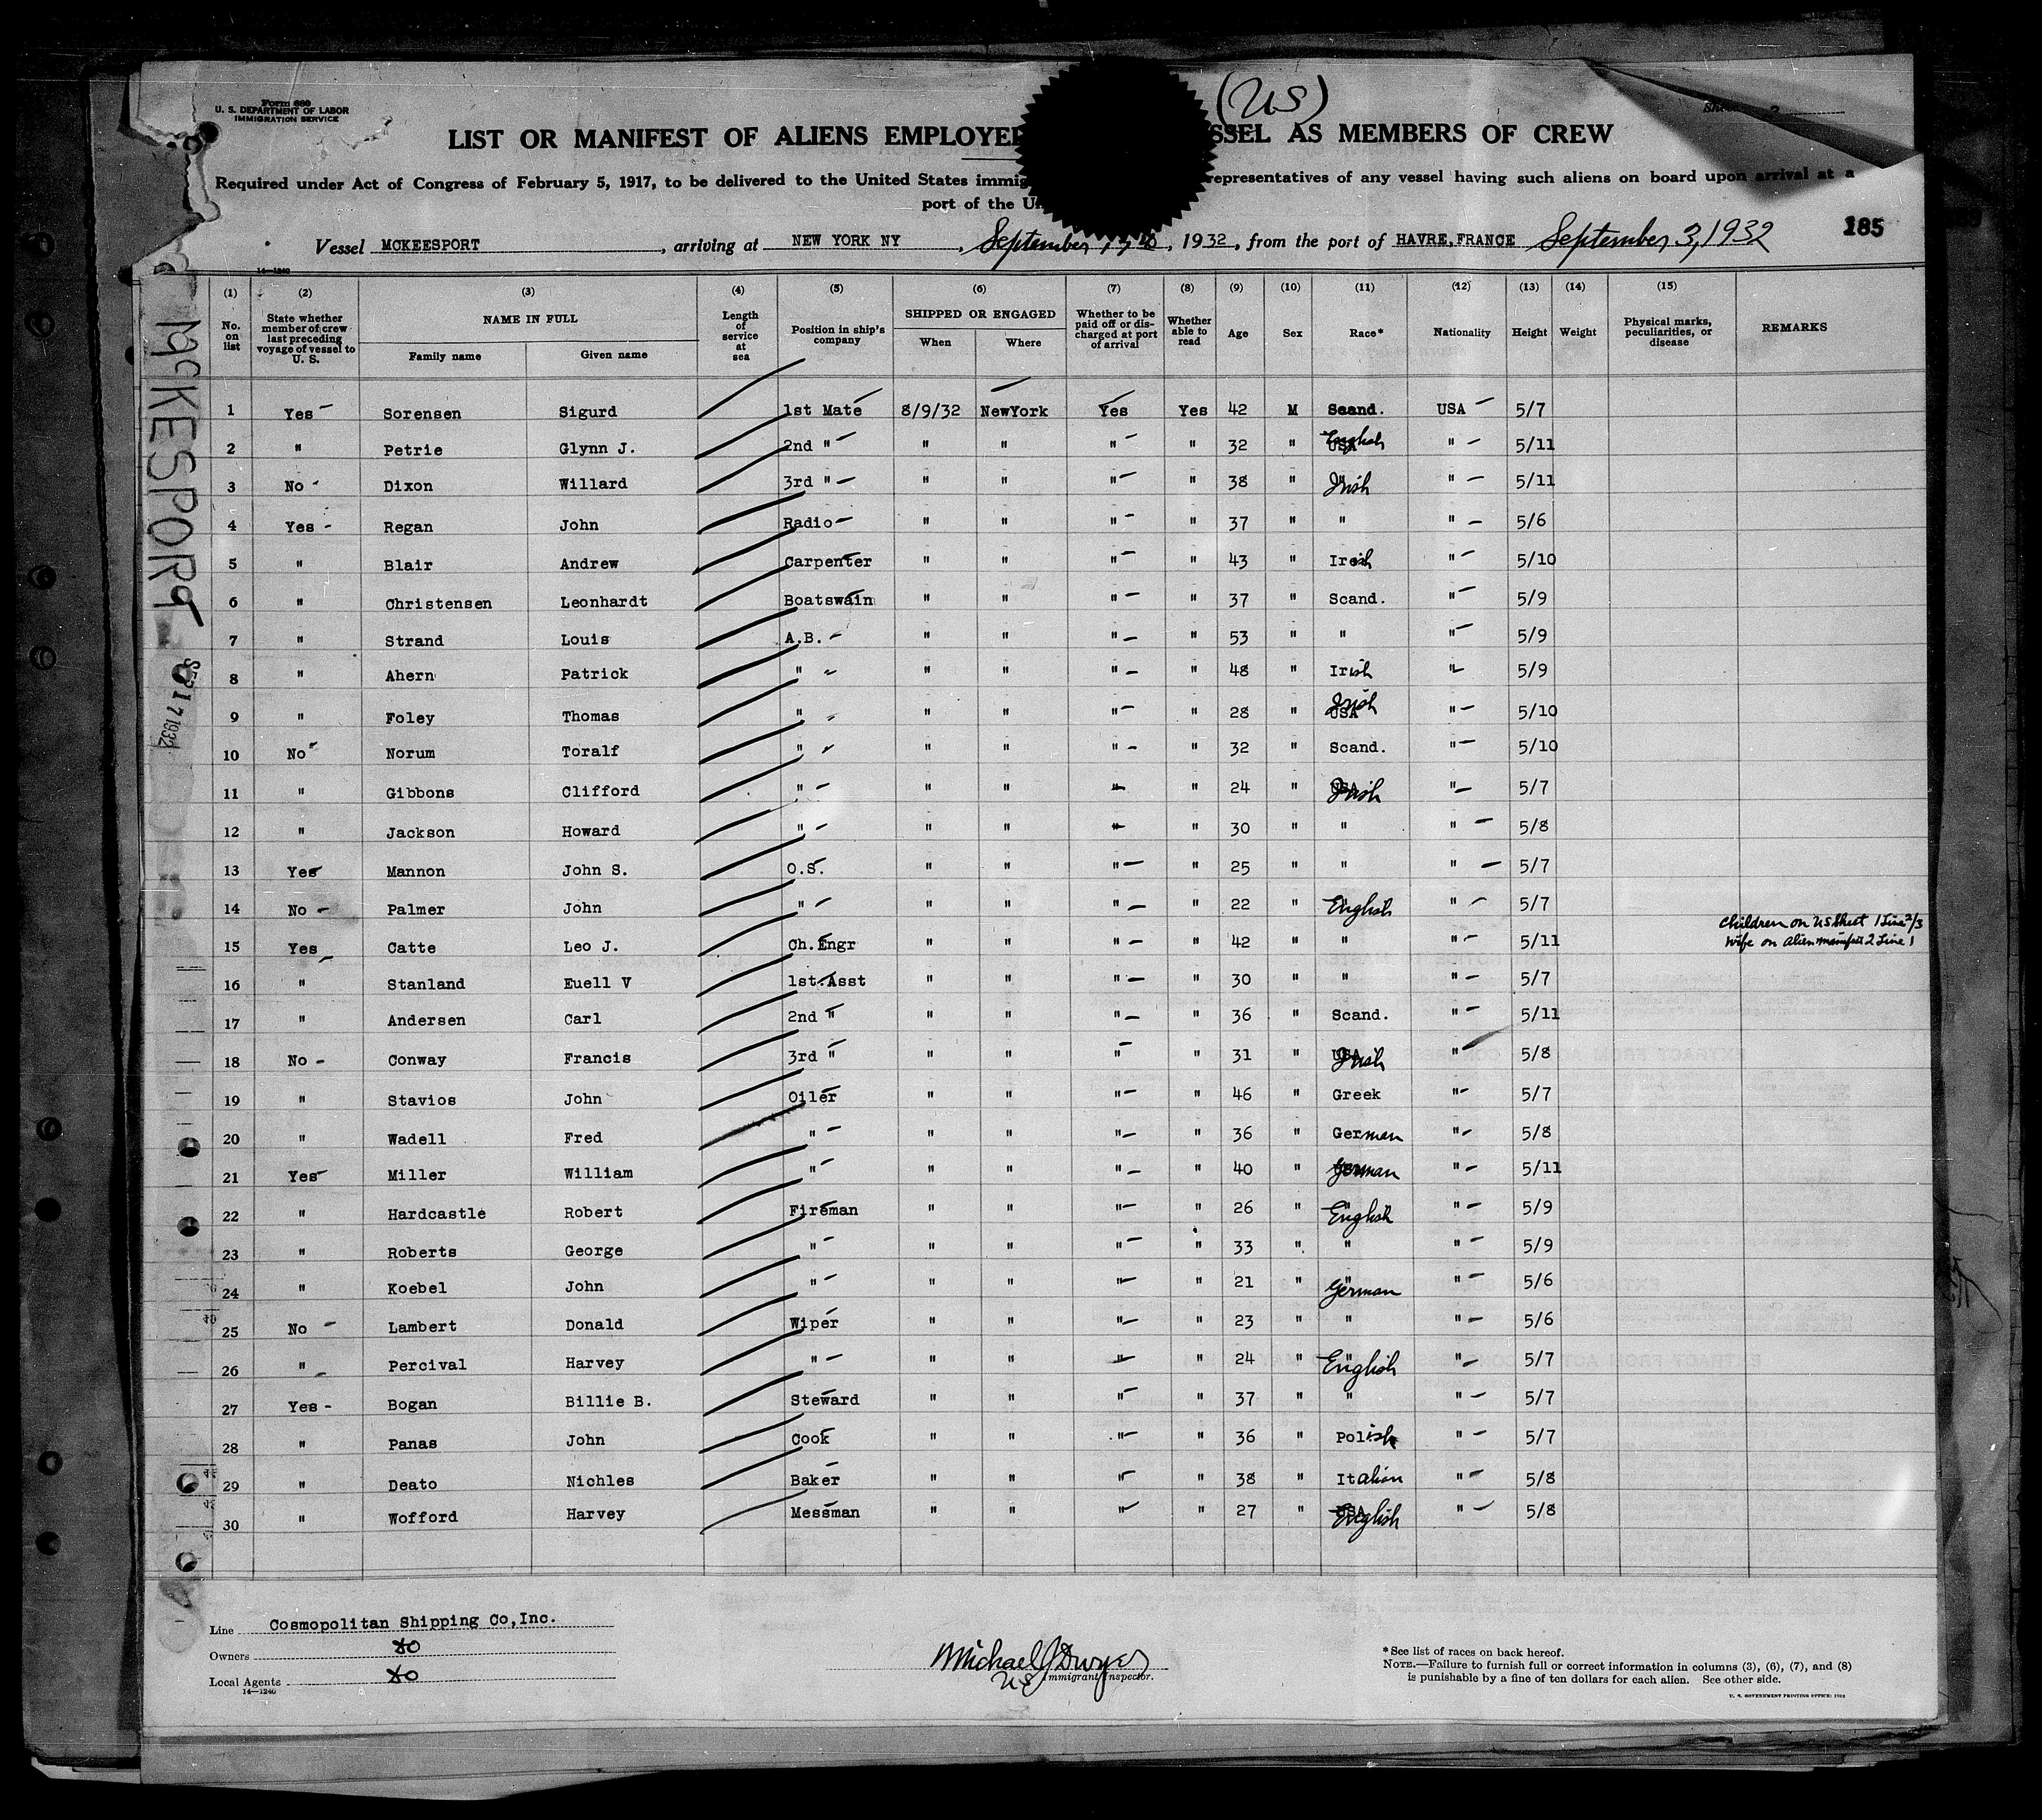 (US)
Form 680
U. S. DEPARTMENT OF LABOR
IMMIGRATION SERVICE
LIST OR MANIFEST OF ALIENS EMPLOYED SSEL AS MEMBERS OF CREW
Required under Act of Congress of February 5, 1917, to be delivered to the United States immig representatives of any vessel having such aliens on board upon arrival at a
port of the Un
185
Vessel MCKEESPORT, arriving at NEW YORK NY, September 17th, 1932, from the port of HAVRE,FRANCE September 3, 1932
14—1240
(1) (2) (3) (4) (5) (6) (7) (8) (9) (10) (11) (12) (13) (14) (15)
No. on list State whether member of crew last preceding voyage of vessel to U. S. NAME IN FULL Family name Given name Length of service at sea Position in ship's company SHIPPED OR ENGAGED When Where Whether to be paid off or discharged at port of arrival Whether able to read Age Sex Race* Nationality Height Weight Physical marks, peculiarities, or disease REMARKS
1 Yes Sorensen Sigurd 1st Mate 8/9/32 NewYork Yes Yes 42 M Scand. USA 5/7
2 " Petrie Glynn J. 2nd " " " " " 32 " USA English " 5/11
3 No Dixon Willard 3rd " " " " " 38 " " Irish " 5/11
4 Yes Regan John Radio " " " " 37 " " " 5/6
5 " Blair Andrew Carpenter " " " " 43 " Irish " 5/10
6 " Christensen Leonhardt Boatswain " " " " 37 " Scand. " 5/9
7 " Strand Louis A.B. " " " " 53 " " " 5/9
8 " Ahern Patrick " " " " " 48 " Irish " 5/9
9 " Foley Thomas " " " " " 28 " USA Irish " 5/10
10 No Norum Toralf " " " " " 32 " Scand. " 5/10
11 " Gibbons Clifford " " " " " 24 " USA Irish " 5/7
12 " Jackson Howard " " " " " 30 " " " 5/8
13 Yes Mannon John S. O.S. " " " " 25 " " " 5/7
14 No Palmer John " " " " " 22 " English " 5/7
15 Yes Catte Leo J. Ch.Engr " " " " 42 " " " 5/11 Children on US Sheet 1 Line 2/3
wife on alien manifest 2 Line 1
16 " Stanland Euell V 1st.Asst " " " " 30 " " " 5/7
17 " Andersen Carl 2nd " " " " " 36 " Scand. " 5/11
18 No Conway Francis 3rd " " " " " 31 " USA Irish " 5/8
19 " Stavios John Oiler " " " " 46 " Greek " 5/7
20 " Wadell Fred " " " " " 36 " German " 5/8
21 Yes Miller William " " " " " 40 " German " 5/11
22 " Hardcastle Robert Fireman " " " " 26 " " English " 5/9
23 " Roberts George " " " " " 33 " " " 5/9
24 " Koebel John " " " " " 21 " " German " 5/6
25 No Lambert Donald Wiper " " " " 23 " " " 5/6
26 " Percival Harvey " " " " " 24 " " English " 5/7
27 Yes Bogan Billie B. Steward " " " " 37 " " " 5/7
28 " Panas John Cook " " " " 36 " Polish " 5/7
29 " Deato Nichles Baker " " " " 38 " Italian " 5/8
30 " Wofford Harvey Messman " " " " 27 " USA English " 5/8
McKESPORT
SEP 17 1932
Line Cosmopolitan Shipping Co,Inc.
Owners
Local Agents
14—1240
Michael J Dwyer
US Immigrant Inspector.
* See list of races on back hereof.
NOTE.—Failure to furnish full or correct information in columns (3), (6), (7), and (8)
is punishable by a fine of ten dollars for each alien. See other side.
U. S. GOVERNMENT PRINTING OFFICE: 1932